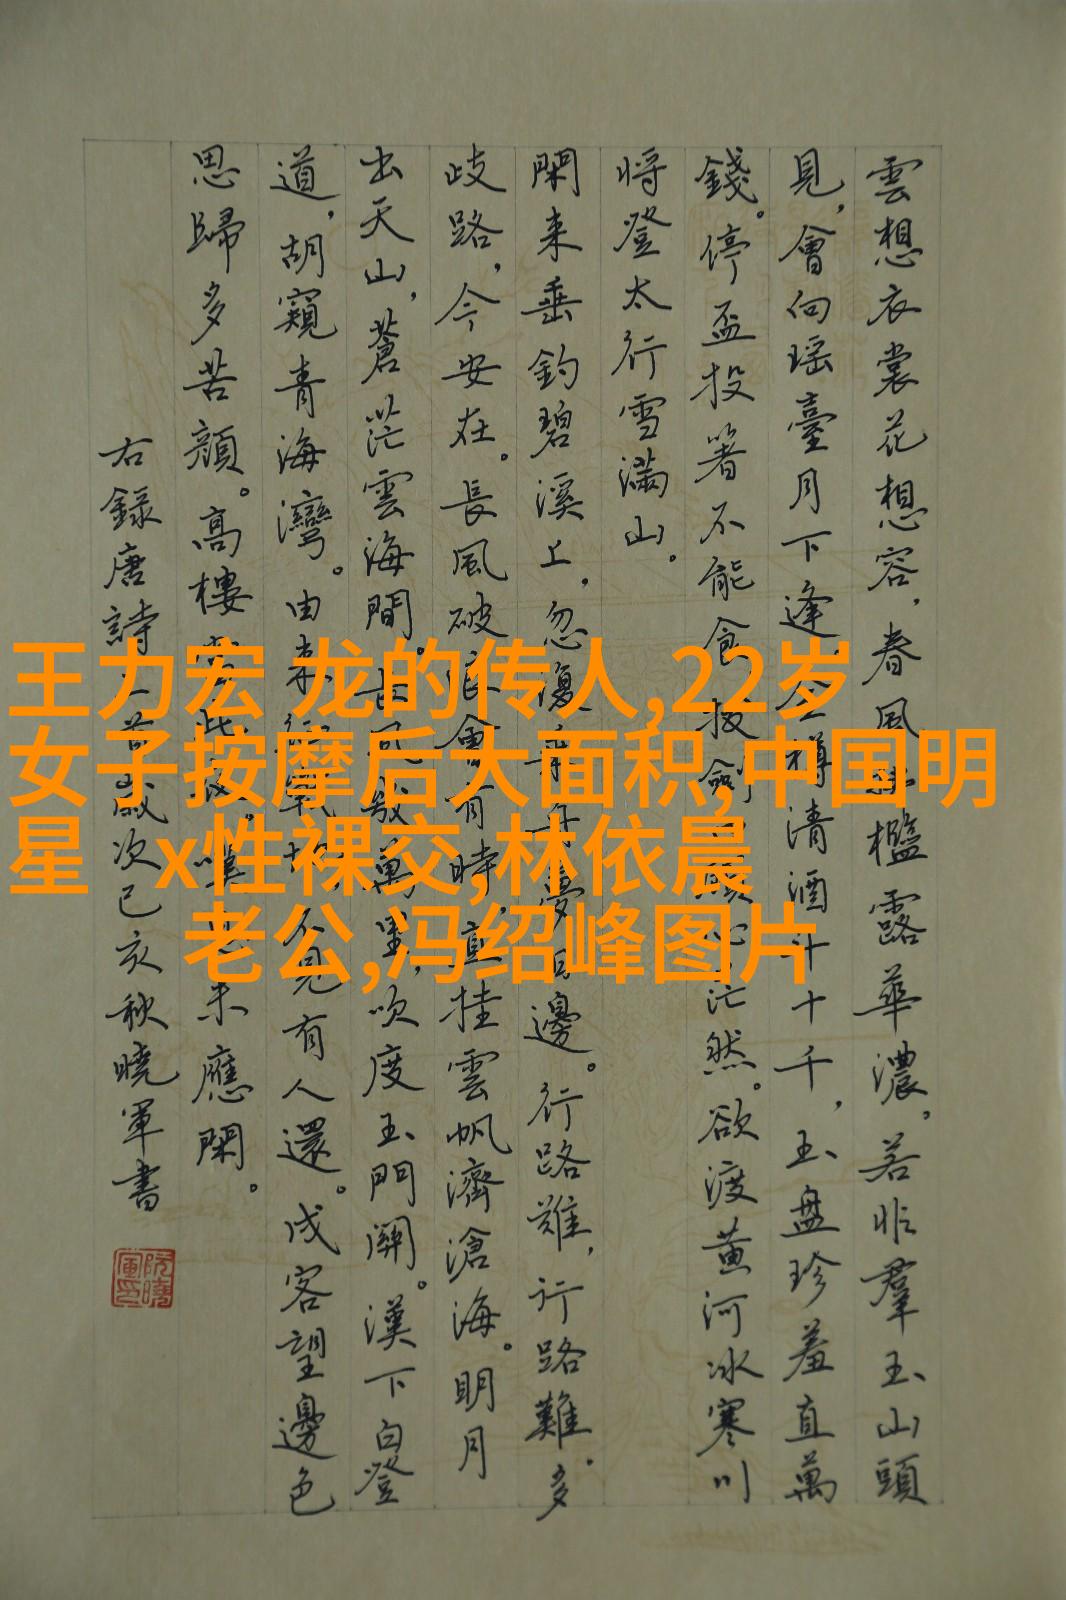 雲想衣裳花想容,春風檻露華濃。若非羣玉山頭
見,會向瑤臺月下逢金樽清酒斗十千,玉盤珍羞直萬
錢。停盃投箸不能食拔劍顧心茫然。欲渡黃河冰寒川
將登太行雪滿山。
閑来垂釣碧溪上,忽復乘舟夢日邊。行路難,行路難。多
歧路,今安在。長風破浪會有時,直挂雲帆濟滄海。明月
出天山,蒼茫雲海間。長風幾萬里,吹度玉門關。漢下白登
道,胡窺青海灣。由来征戰地不見有人還。戍客望邊色
思歸多苦顏。高樓當此夜。嘆息未應閑。
右錄唐詩三首歲次己亥秋曉軍書
阮曉軍印
王力宏 龙的传人,22岁
女子按摩后大面积,中国明
星 x性裸交,林依晨
老公,冯绍峰图片